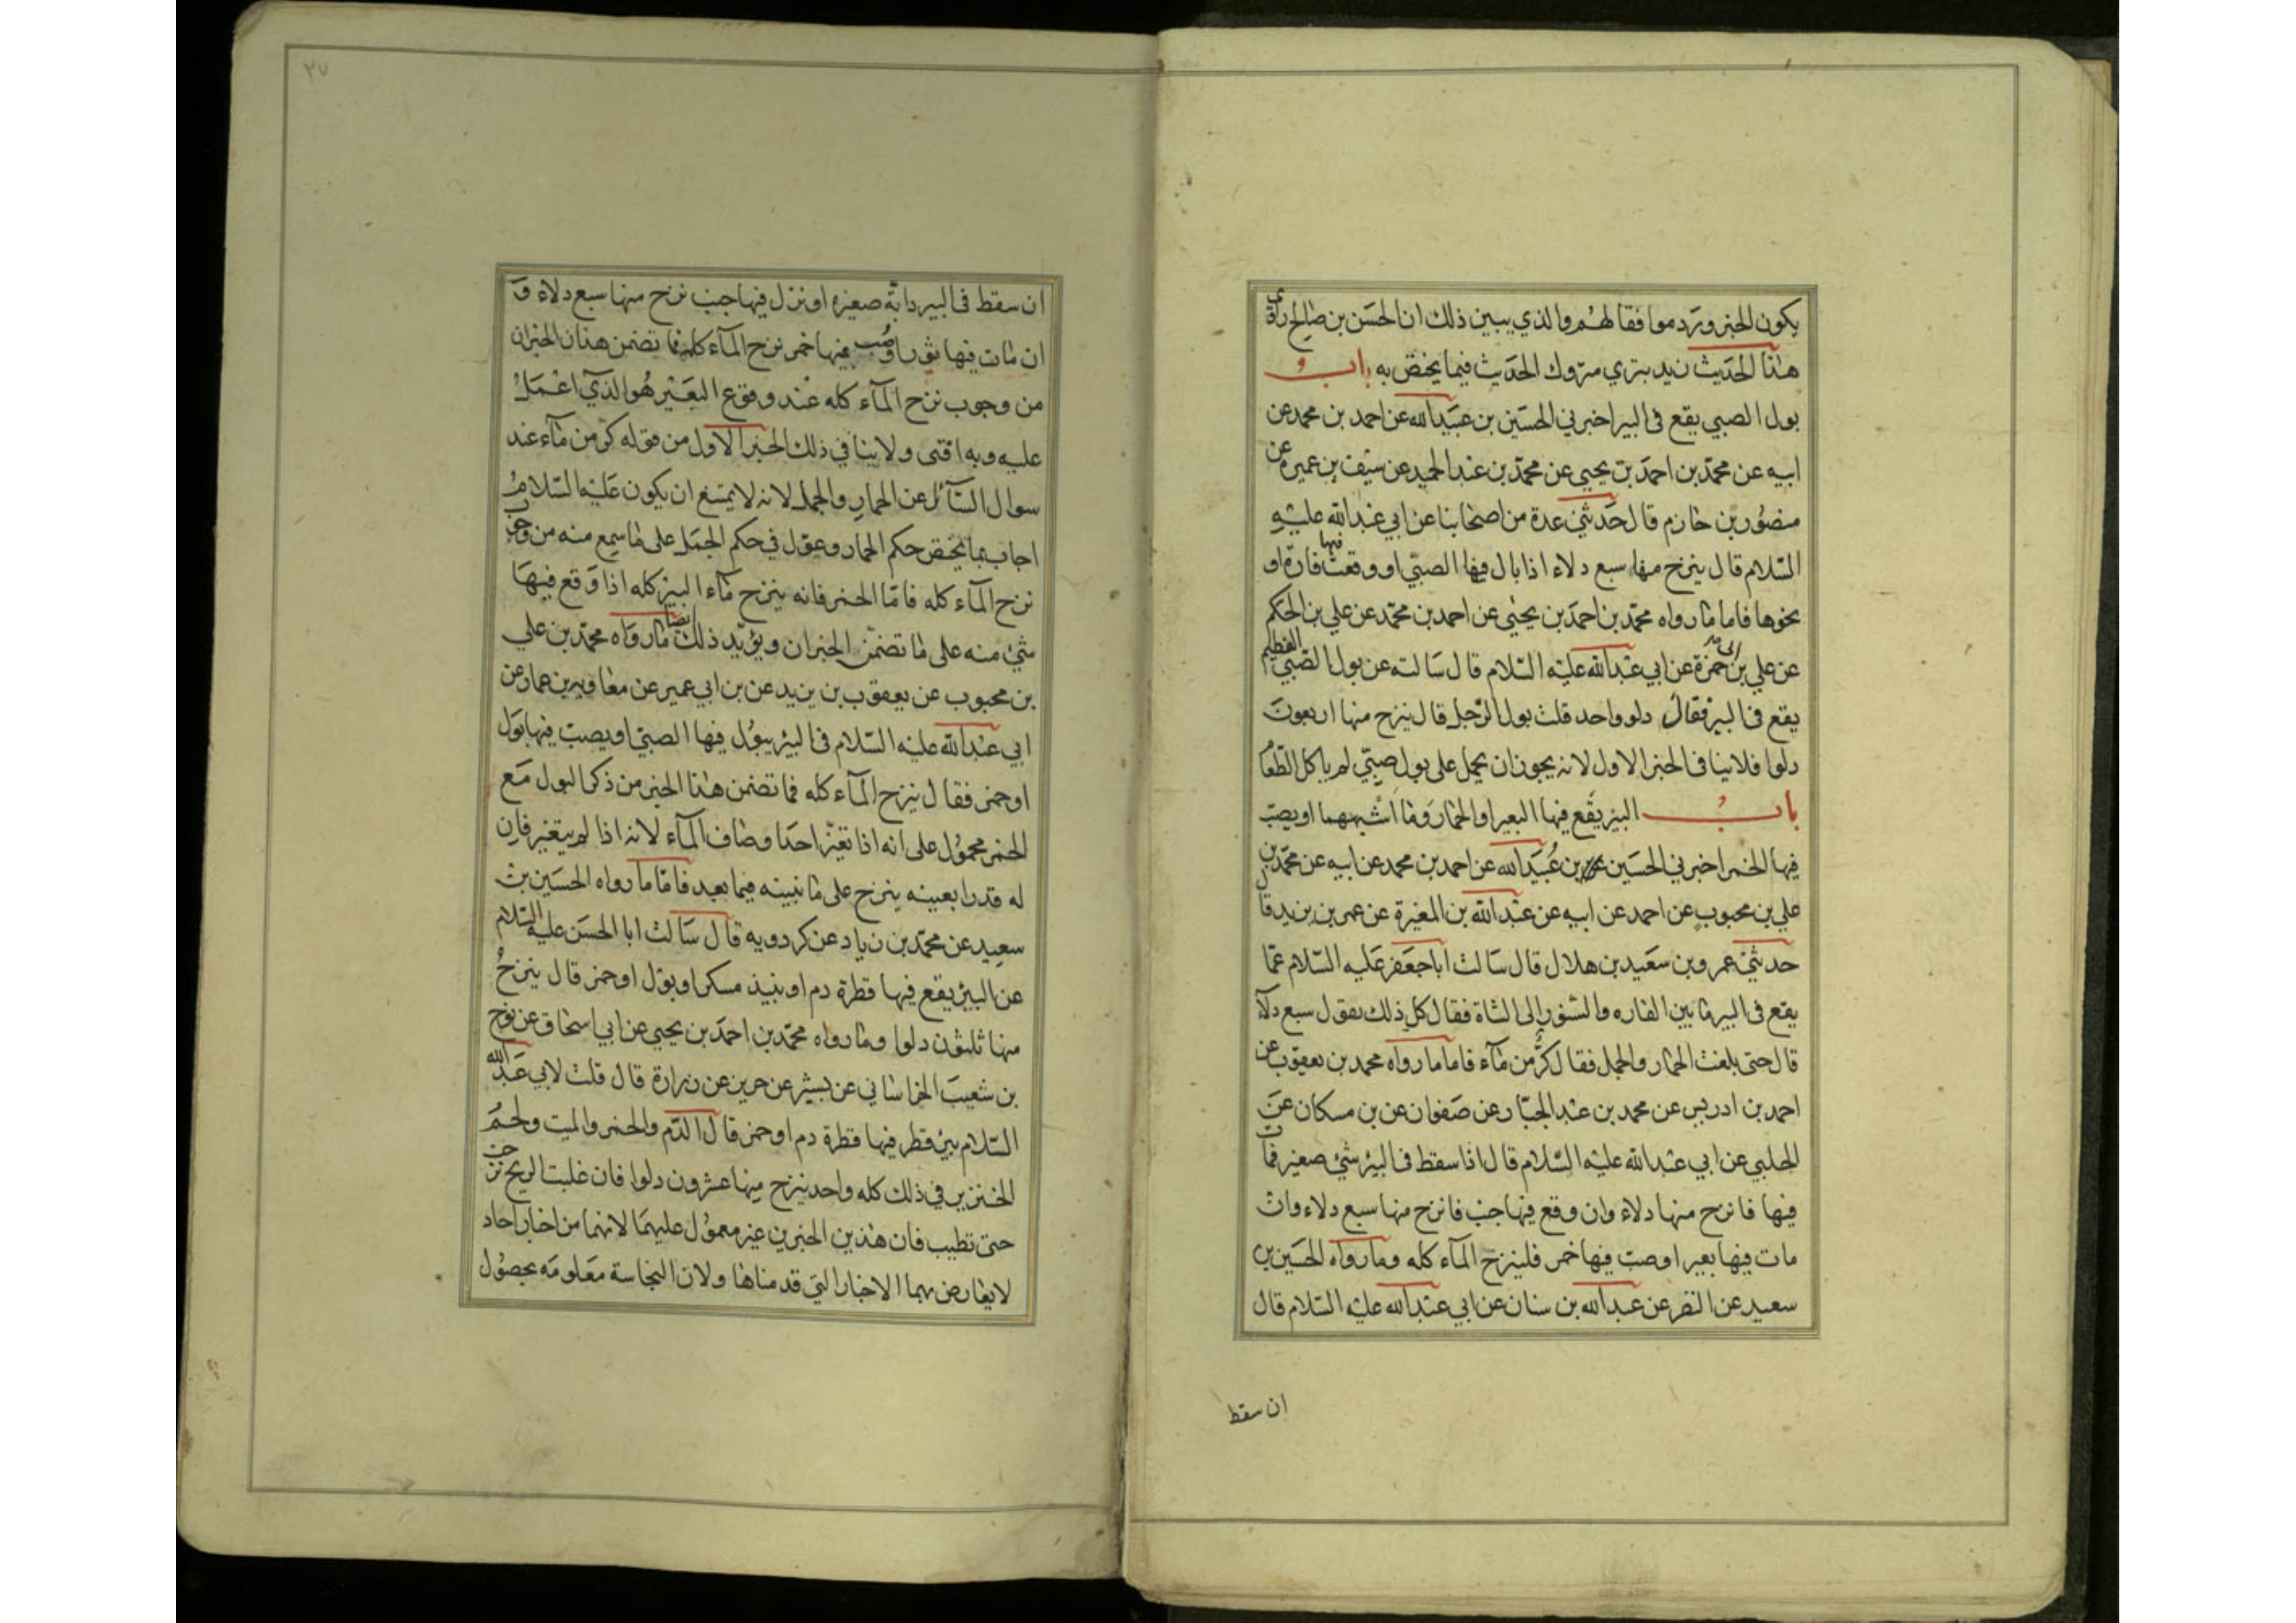 يكون الخبر ورد موافقا لهم والذي يبين ذلك ان الحسن بن صالح راوي
هذا الحديث زيدي بتري متروك الحديث فيما يختص به باب
بول الصبي يقع في البير اخبرني الحسين بن عبيد الله عن احمد بن محمد عن
ابيه عن محمد بن احمد بن يحيي عن محمد بن عبد الحميد عن سيف بن عميرة عن
منصور بن حازم قال حدثني عدة من اصحابنا عن ابي عبد الله عليه
السلام قال ينزح منها سبع دلاء اذا بال فيها الصبي او وقعت فيها فارة او
نحوها فاما ما رواه محمد بن احمد بن يحيي عن احمد بن محمد عن علي بن الحكم
عن علي بن ابي حمزة عن ابي عبد الله عليه السلام قال سالته عن بول الصبي الفطيم
يقع في البير فقال دلو واحد قلت بول الرجل قال ينزح منها اربعون
دلوا فلا ينافي الخبر الاول لانه يجوز ان يحمل على بول صبي لم ياكل الطعام
باب البير يقع فيها البعير او الحمار وما اشبههما او يصب
فيها الخمر اخبرني الحسين بن عبيد الله عن احمد بن محمد عن ابيه عن محمد بن
علي بن محبوب عن احمد عن ابيه عن عبد الله بن المغيرة عن عمر بن يزيد قال
حدثني عمرو بن سعيد بن هلال قال سالت ابا جعفر عليه السلام عما
يقع في البير ما بين الفاره والسنور الى الشاة فقال كل ذلك يقول سبع دلآء
قال حتى بلغت الحمار والجمل فقال كر من مآء فاما ما رواه محمد بن يعقوب عن
احمد بن ادريس عن محمد بن عبد الجبار عن صفوان عن بن مسكان عن
الحلبي عن ابي عبد الله عليه السلام قال اذا سقط في البير شئ صغير فمات
فيها فانزح منها دلاء وان وقع فيها جنب فانزح منها سبع دلاء وان
مات فيها بعير او صب فيها خمر فلينزح المآء كله وما رواه الحسين بن
سعيد عن النضر عن عبد الله بن سنان عن ابي عبد الله عليه السلام قال
ان سقط
٢٧
ان سقط في البير دابة صغيرة او نزل فيها جنب نزح منها سبع دلاء و
ان مات فيها ثور او صب فيها خمر نزح المآء كله فما تضمن هذان الخبران
من وجوب نزح المآء كله عند وقوع البعير هو الذي اعمل
عليه وبه افتى ولا ينافي ذلك الخبر الاول من قوله كر من مآء عند
سوال السآئل عن الحمار والجمل لانه لا يمتنع ان يكون عليه السلام
اجاب بما يختص حكم الحمار وعول في حكم الجمل على ما سمع منه من وجوب
نزح المآء كله فاما الخمر فانه ينزح مآء البير كله اذا وقع فيها
شئ منه على ما تضمن الخبران ويؤيد ذلك ايضا ما رواه محمد بن علي
بن محبوب عن يعقوب بن يزيد عن بن ابي عمير عن معاوية بن عمار عن
ابي عبد الله عليه السلام في البير يبول فيها الصبي او يصب فيها بول
او خمر فقال ينزح المآء كله فما تضمن هذا الخبر من ذكر البول مع
الخمر محمول على انه اذا تغير احد اوصاف المآء لانه اذا لم يتغير فان
له قدرا بعينه ينزح على ما نبينه فيما بعد فاما ما رواه الحسين بن
سعيد عن محمد بن زياد عن كردويه قال سالت ابا الحسن عليه السلام
عن البير يقع فيها قطرة دم او نبيذ مسكر او بول او خمر قال ينزح
منها ثلثون دلوا وما رواه محمد بن احمد بن يحيي عن ابي اسحاق عن نوح
بن شعيب الخراساني عن بشير عن حريز عن زرارة قال قلت لابي عبد الله
السلام بير قطر فيها قطرة دم او خمر قال الدم والخمر والميت ولحم
الخنزير في ذلك كله واحد ينزح منها عشرون دلوا فان غلبت الريح نزحت
حتى تطيب فان هذين الخبرين غير معمول عليهما لانهما من اخبار احاد
لا يعارض بهما الاخبار التي قدمناها ولان النجاسة معلومه بحصول